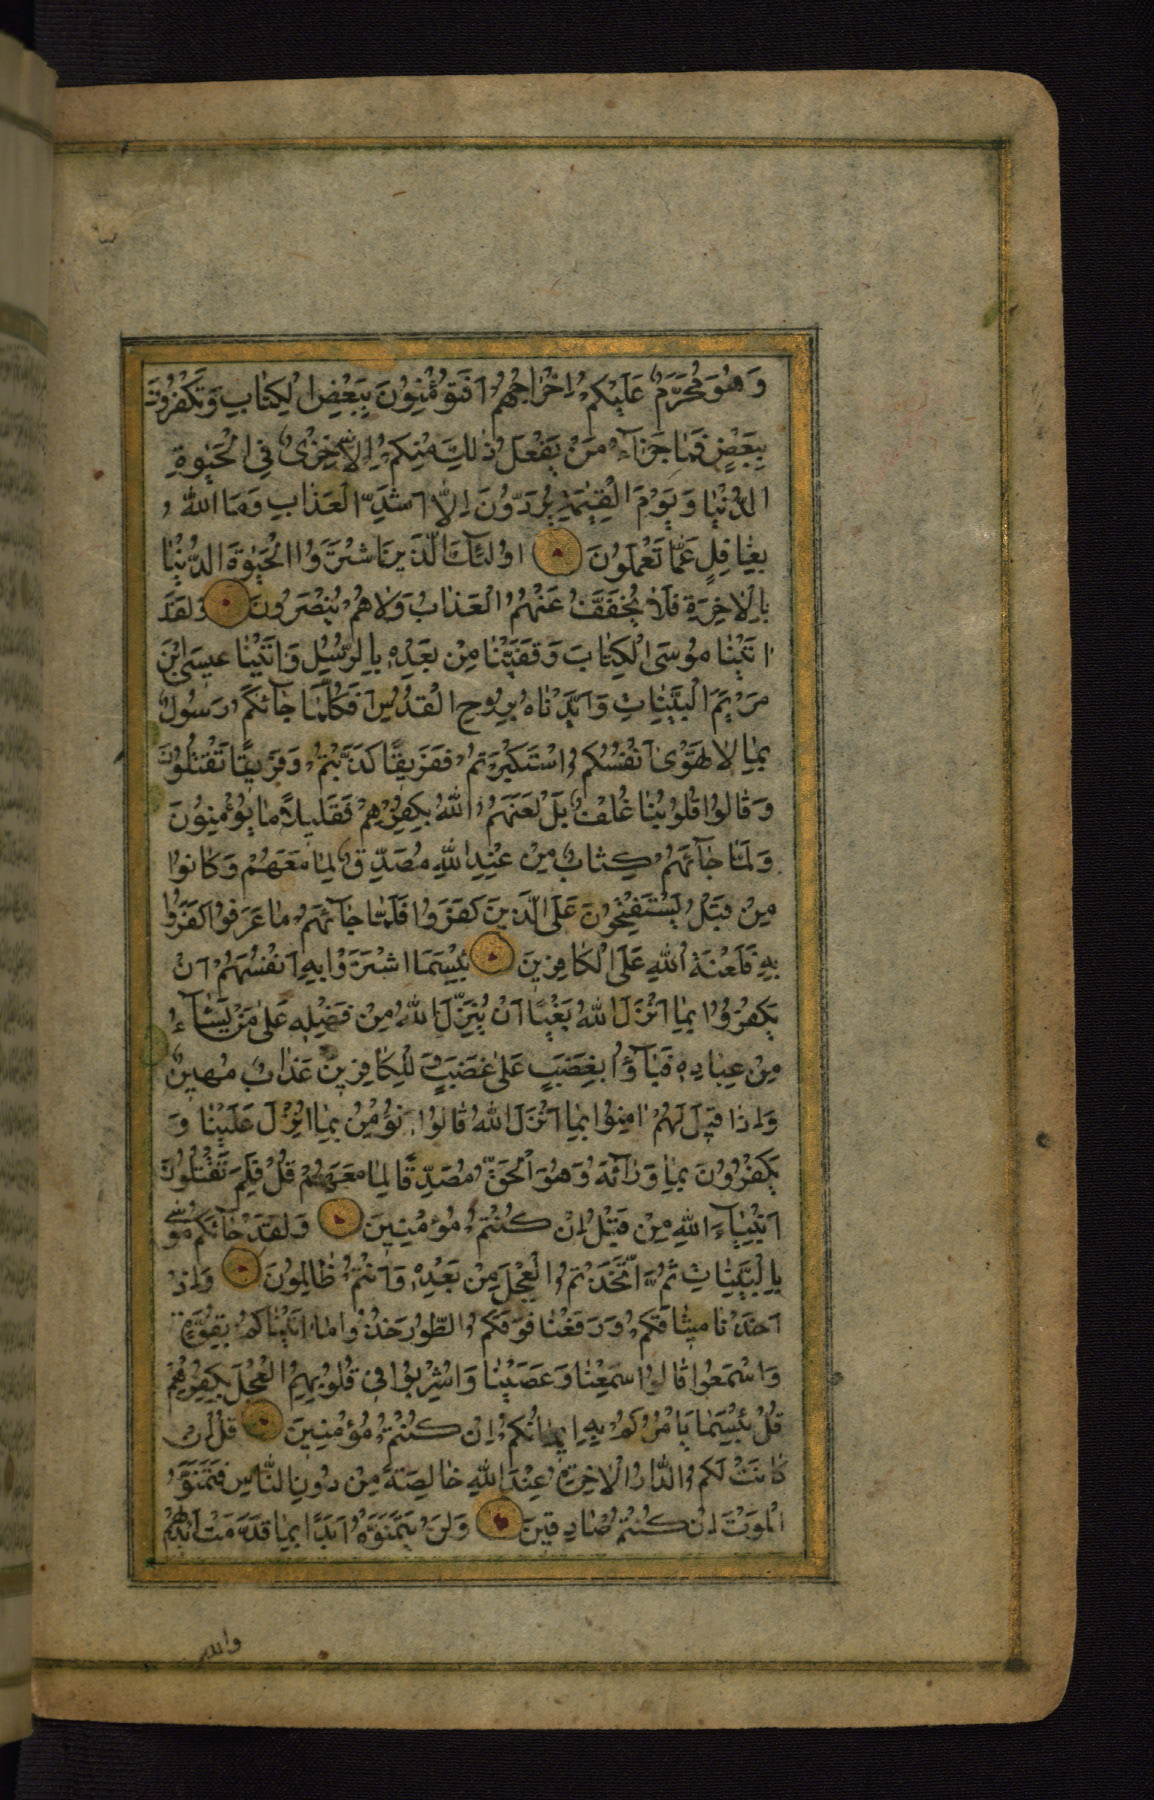 وَهُوَ مُحَرَّمٌ عَلَيْكُمْ اِخْرَاجُهُمْ اَفَتُؤْمِنُونَ بِبَعْضِ الْكِتَابِ وَتَكْفُرُونَ
بِبَعْضٍ فَمَا جَزَآءُ مَنْ يَفْعَلُ ذٰلِكَ مِنْكُمْ اِلَّا خِزْىٌ فِى الْحَيٰوةِ
الدُّنْيَا وَيَوْمَ الْقِيٰمَةِ يُرَدُّونَ اِلٰٓى اَشَدِّ الْعَذَابِ وَمَا اللّٰهُ
بِغَافِلٍ عَمَّا تَعْمَلُونَ اُولٰئِكَ الَّذِينَ اشْتَرَوُا الْحَيٰوةَ الدُّنْيَا
بِالْاٰخِرَةِ فَلَا يُخَفَّفُ عَنْهُمُ الْعَذَابُ وَلَا هُمْ يُنْصَرُونَ وَلَقَدْ
اٰتَيْنَا مُوسَى الْكِتَابَ وَقَفَّيْنَا مِنْ بَعْدِهٖ بِالرُّسُلِ وَاٰتَيْنَا عِيسَى ابْنَ
مَرْيَمَ الْبَيِّنَاتِ وَاَيَّدْنَاهُ بِرُوحِ الْقُدُسِ اَفَكُلَّمَا جَآئَكُمْ رَسُولٌ
بِمَا لَا تَهْوٰىٓ اَنْفُسُكُمُ اسْتَكْبَرْتُمْ فَفَرِيقًا كَذَّبْتُمْ وَفَرِيقًا تَقْتُلُونَ
وَقَالُوا قُلُوبُنَا غُلْفٌ بَلْ لَعَنَهُمُ اللّٰهُ بِكُفْرِهِمْ فَقَلِيلًا مَا يُؤْمِنُونَ
وَلَمَّا جَآئَهُمْ كِتَابٌ مِنْ عِنْدِ اللّٰهِ مُصَدِّقٌ لِمَا مَعَهُمْ وَكَانُوا
مِنْ قَبْلُ يَسْتَفْتِحُونَ عَلَى الَّذِينَ كَفَرُوا فَلَمَّا جَآئَهُمْ مَا عَرَفُوا كَفَرُوا
بِهٖ فَلَعْنَةُ اللّٰهِ عَلَى الْكَافِرِينَ بِئْسَمَا اشْتَرَوْا بِهٖ اَنْفُسَهُمْ اَنْ
يَكْفُرُوا بِمَا اَنْزَلَ اللّٰهُ بَغْيًا اَنْ يُنَزِّلَ اللّٰهُ مِنْ فَضْلِهٖ عَلٰى مَنْ يَشَآءُ
مِنْ عِبَادِهٖ فَبَآؤُا بِغَضَبٍ عَلٰى غَضَبٍ وَلِلْكَافِرِينَ عَذَابٌ مُهِينٌ
وَاِذَا قِيلَ لَهُمْ اٰمِنُوا بِمَا اَنْزَلَ اللّٰهُ قَالُوا نُؤْمِنُ بِمَا اُنْزِلَ عَلَيْنَا وَ
يَكْفُرُونَ بِمَا وَرَآئَهُ وَهُوَ الْحَقُّ مُصَدِّقًا لِمَا مَعَهُمْ قُلْ فَلِمَ تَقْتُلُونَ
اَنْبِيَآءَ اللّٰهِ مِنْ قَبْلُ اِنْ كُنْتُمْ مُؤْمِنِينَ وَلَقَدْ جَآئَكُمْ مُوسٰى
بِالْبَيِّنَاتِ ثُمَّ اتَّخَذْتُمُ الْعِجْلَ مِنْ بَعْدِهٖ وَاَنْتُمْ ظَالِمُونَ وَاِذْ
اَخَذْنَا مِيثَاقَكُمْ وَرَفَعْنَا فَوْقَكُمُ الطُّورَ خُذُوا مَا اٰتَيْنَاكُمْ بِقُوَّةٍ
وَاسْمَعُوا قَالُوا سَمِعْنَا وَعَصَيْنَا وَاُشْرِبُوا فِى قُلُوبِهِمُ الْعِجْلَ بِكُفْرِهِمْ
قُلْ بِئْسَمَا يَاْمُرُكُمْ بِهٖ اِيمَانُكُمْ اِنْ كُنْتُمْ مُؤْمِنِينَ قُلْ اِنْ
كَانَتْ لَكُمُ الدَّارُ الْاٰخِرَةُ عِنْدَ اللّٰهِ خَالِصَةً مِنْ دُونِ النَّاسِ فَتَمَنَّوُا
الْمَوْتَ اِنْ كُنْتُمْ صَادِقِينَ وَلَنْ يَتَمَنَّوْهُ اَبَدًا بِمَا قَدَّمَتْ اَيْدِيهِمْ
والله